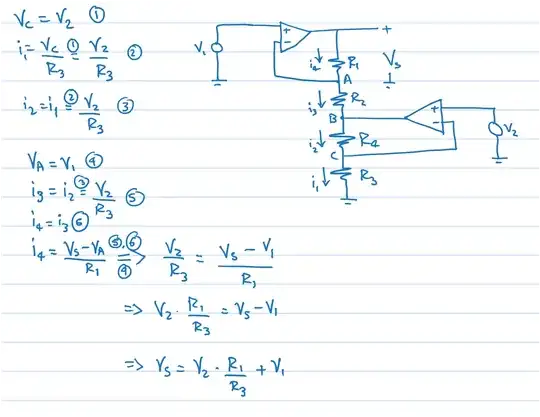 V_C = V_2 ①
i_1 = V_C/R_3 =① V_2/R_3 ②
i_2 = i_1 =② V_2/R_3 ③
V_A = V_1 ④
i_3 = i_2 =③ V_2/R_3 ⑤
i_4 = i_3 ⑥
i_4 = (V_S - V_A)/R_1 =>⑤,⑥ ④ V_2/R_3 = (V_S - V_1)/R_1
=> V_2 · R_1/R_3 = V_S - V_1
=> V_S = V_2 · R_1/R_3 + V_1
+
-
+
V_1
i_4
R_1
V_S
A
i_3
R_2
B
+
-
i_2
R_4
V_2
C
i_1
R_3